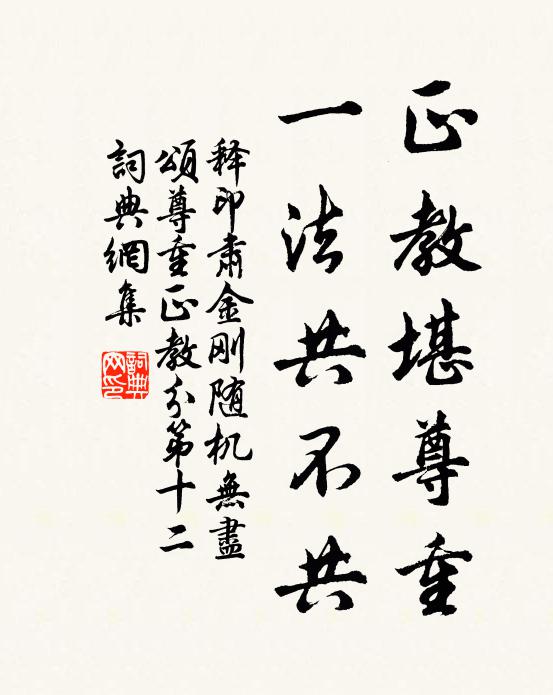 正教堪尊重
一法共不共
释印肃金刚随机無盡
頌尊重正教分第十二
詞典網集
詞典
网印